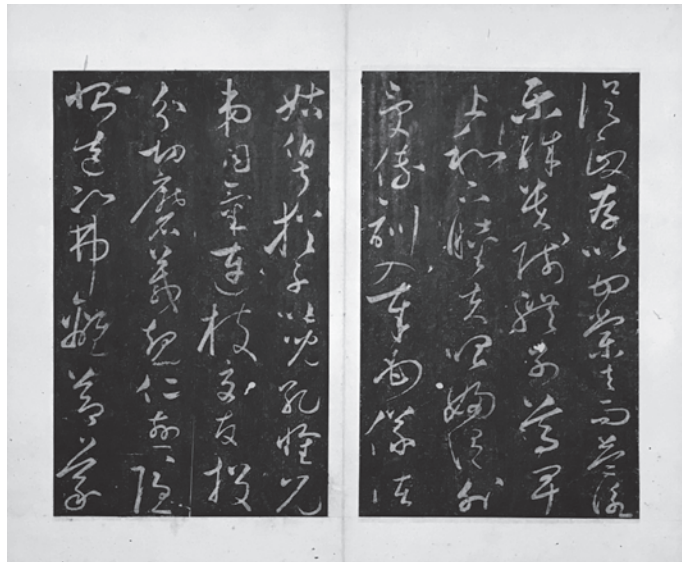 從政存以甘棠去而益詠
樂殊貴賤禮別尊卑
上和下睦夫唱婦隨外
受傅訓入奉母儀諸
姑伯叔猶子比兒孔懷兄
弟同氣連枝交友投
分切磨箴規仁慈隱
惻造次弗離節義